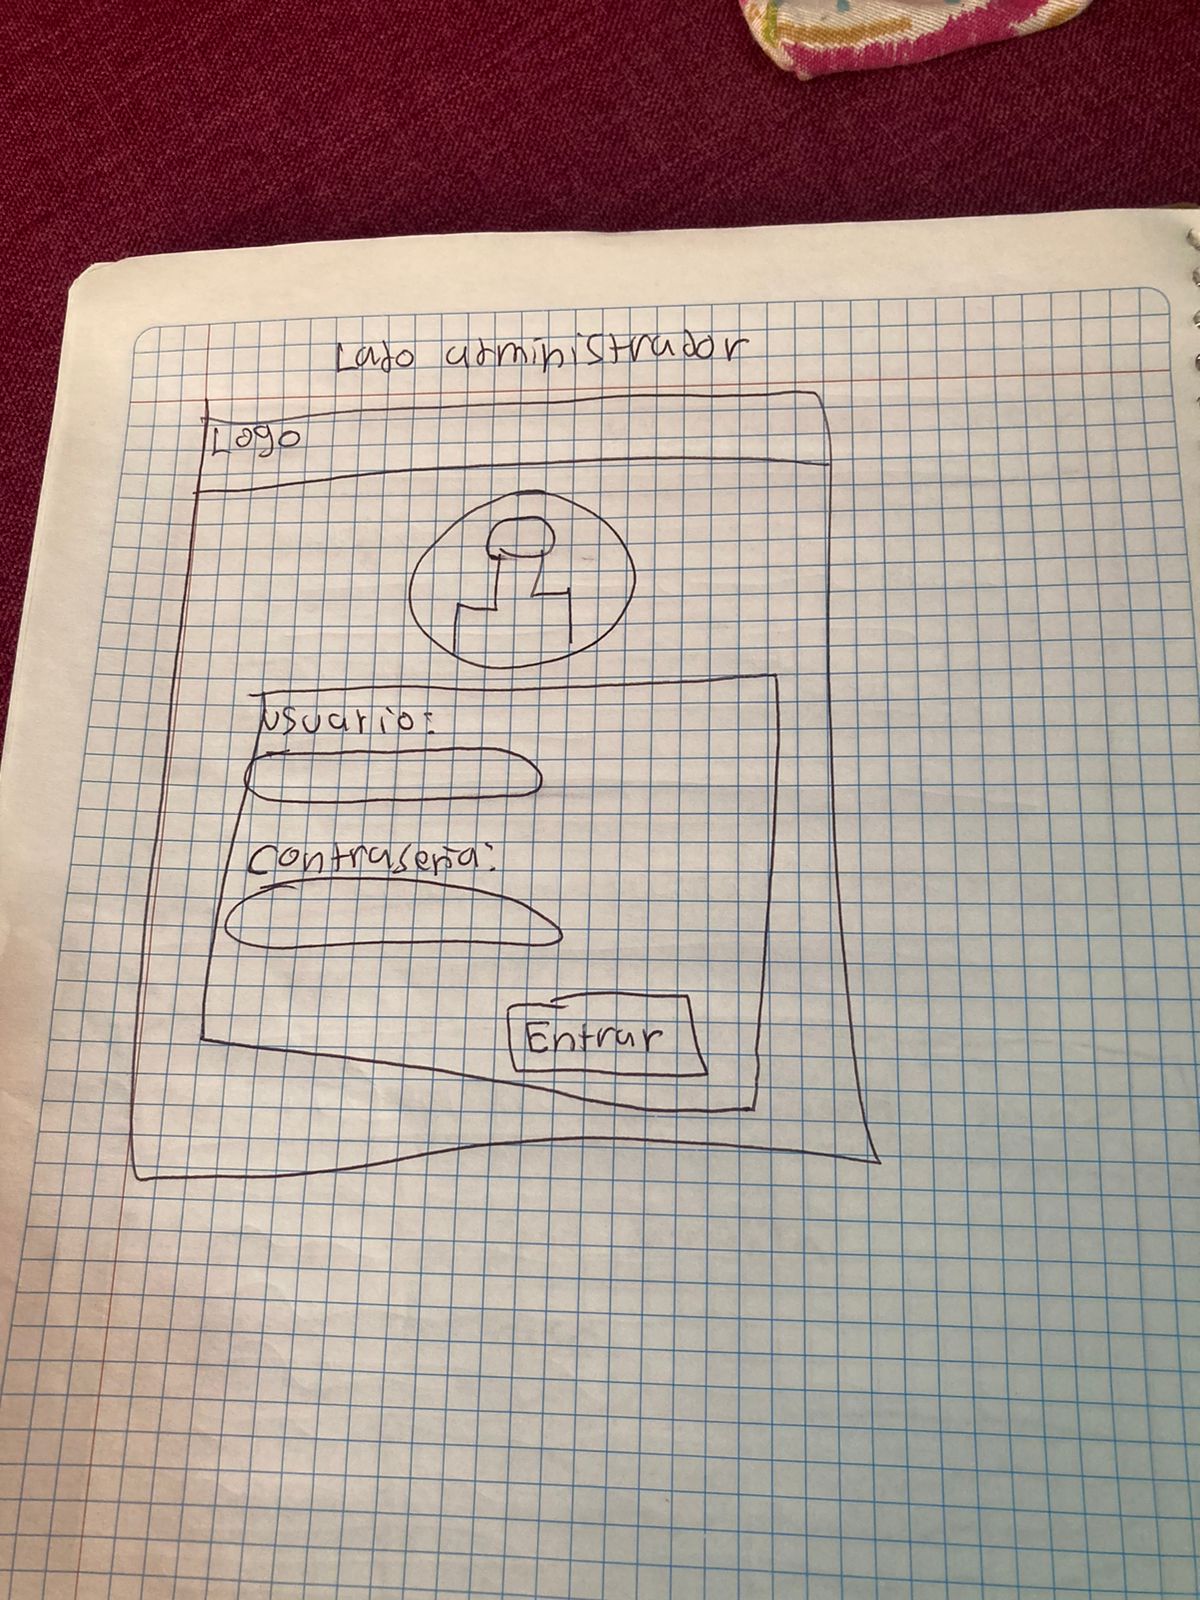 Lado administrador
Logo
Usuario:
Contraseña:
Entrar